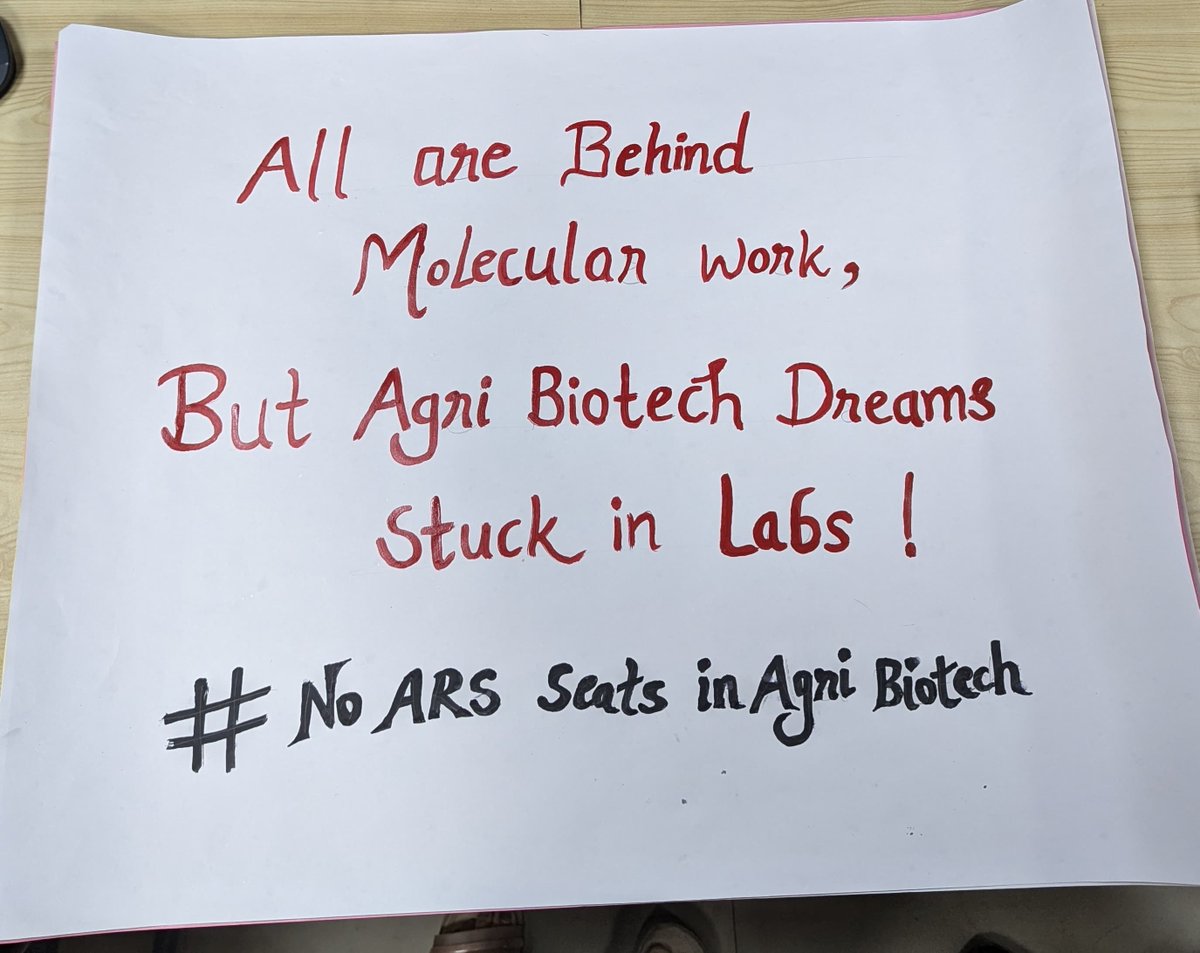 All are Behind
Molecular work,
But Agri Biotech Dreams
Stuck in Labs !
# No ARS Seats in Agri Biotech